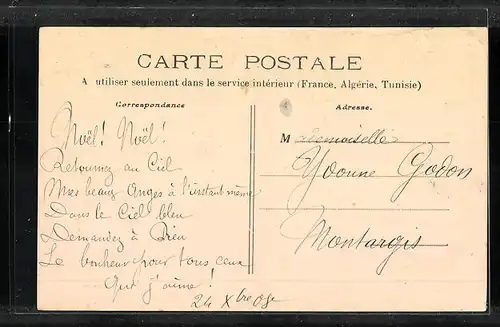 CARTE POSTALE
A utiliser seulement dans le service intérieur (France, Algérie, Tunisie)
Correspondance
Noël! Noël!
Retournez au Ciel
Mes beaux Anges à l'instant même
Dans le Ciel bleu
Demandez à Dieu
Le bonheur pour tous ceux
Que j'aime!
24 Xbre 
Adresse.
Mademoiselle
Yvonne Godon
Montargis